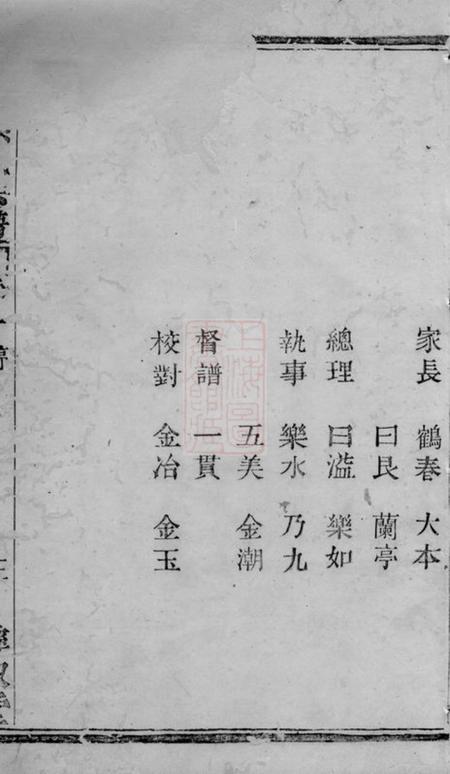 家長 鶴春 大本
曰艮 蘭亭
總理 曰溢 樂如
執事 樂水 乃九
五美 金潮
督譜 一貫
校對 金冶 金玉